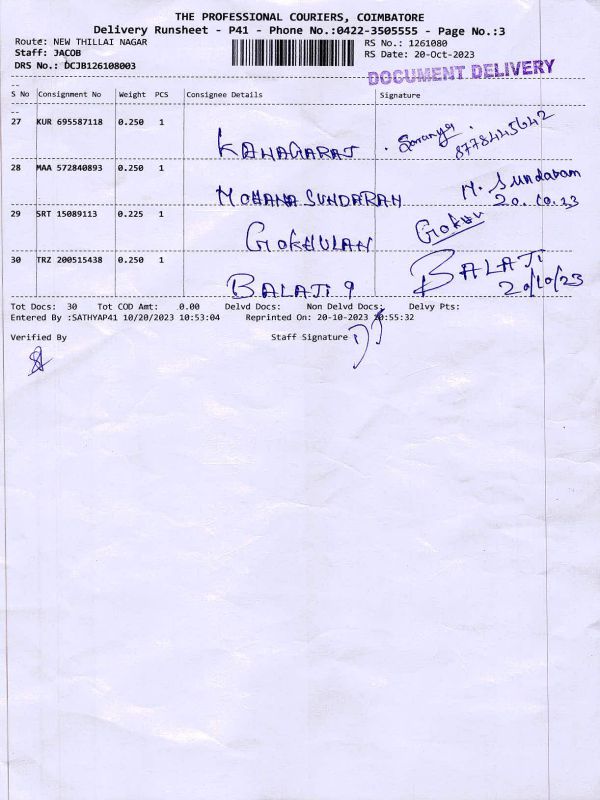 THE PROFESSIONAL COURIERS, COIMBATORE
Delivery Runsheet - P41 - Phone No.:0422-3505555 - Page No.:3
Route: NEW THILLAI NAGAR RS No.: 1261080
Staff: JACOB RS Date: 20-Oct-2023
DRS No.: DCJB126108003
DOCUMENT DELIVERY
S No Consignment No Weight PCS Consignee Details Signature
27 KUR 695587118 0.250 1
KANAGARAJ Saranya 8778445642
28 MAA 572840893 0.250 1
MOHANA SUNDARAN M. Sundaram
20.10.23
29 SRT 15089113 0.225 1
GOKHULAN Gokul
30 TRZ 200515438 0.250 1
BALAJI 9 BALAJI
20/10/23
Tot Docs: 30 Tot COD Amt: 0.00 Delvd Docs: Non Delvd Docs: Delvy Pts:
Entered By :SATHYAP41 10/20/2023 10:53:04 Reprinted On: 20-10-2023 10:55:32
Verified By Staff Signature